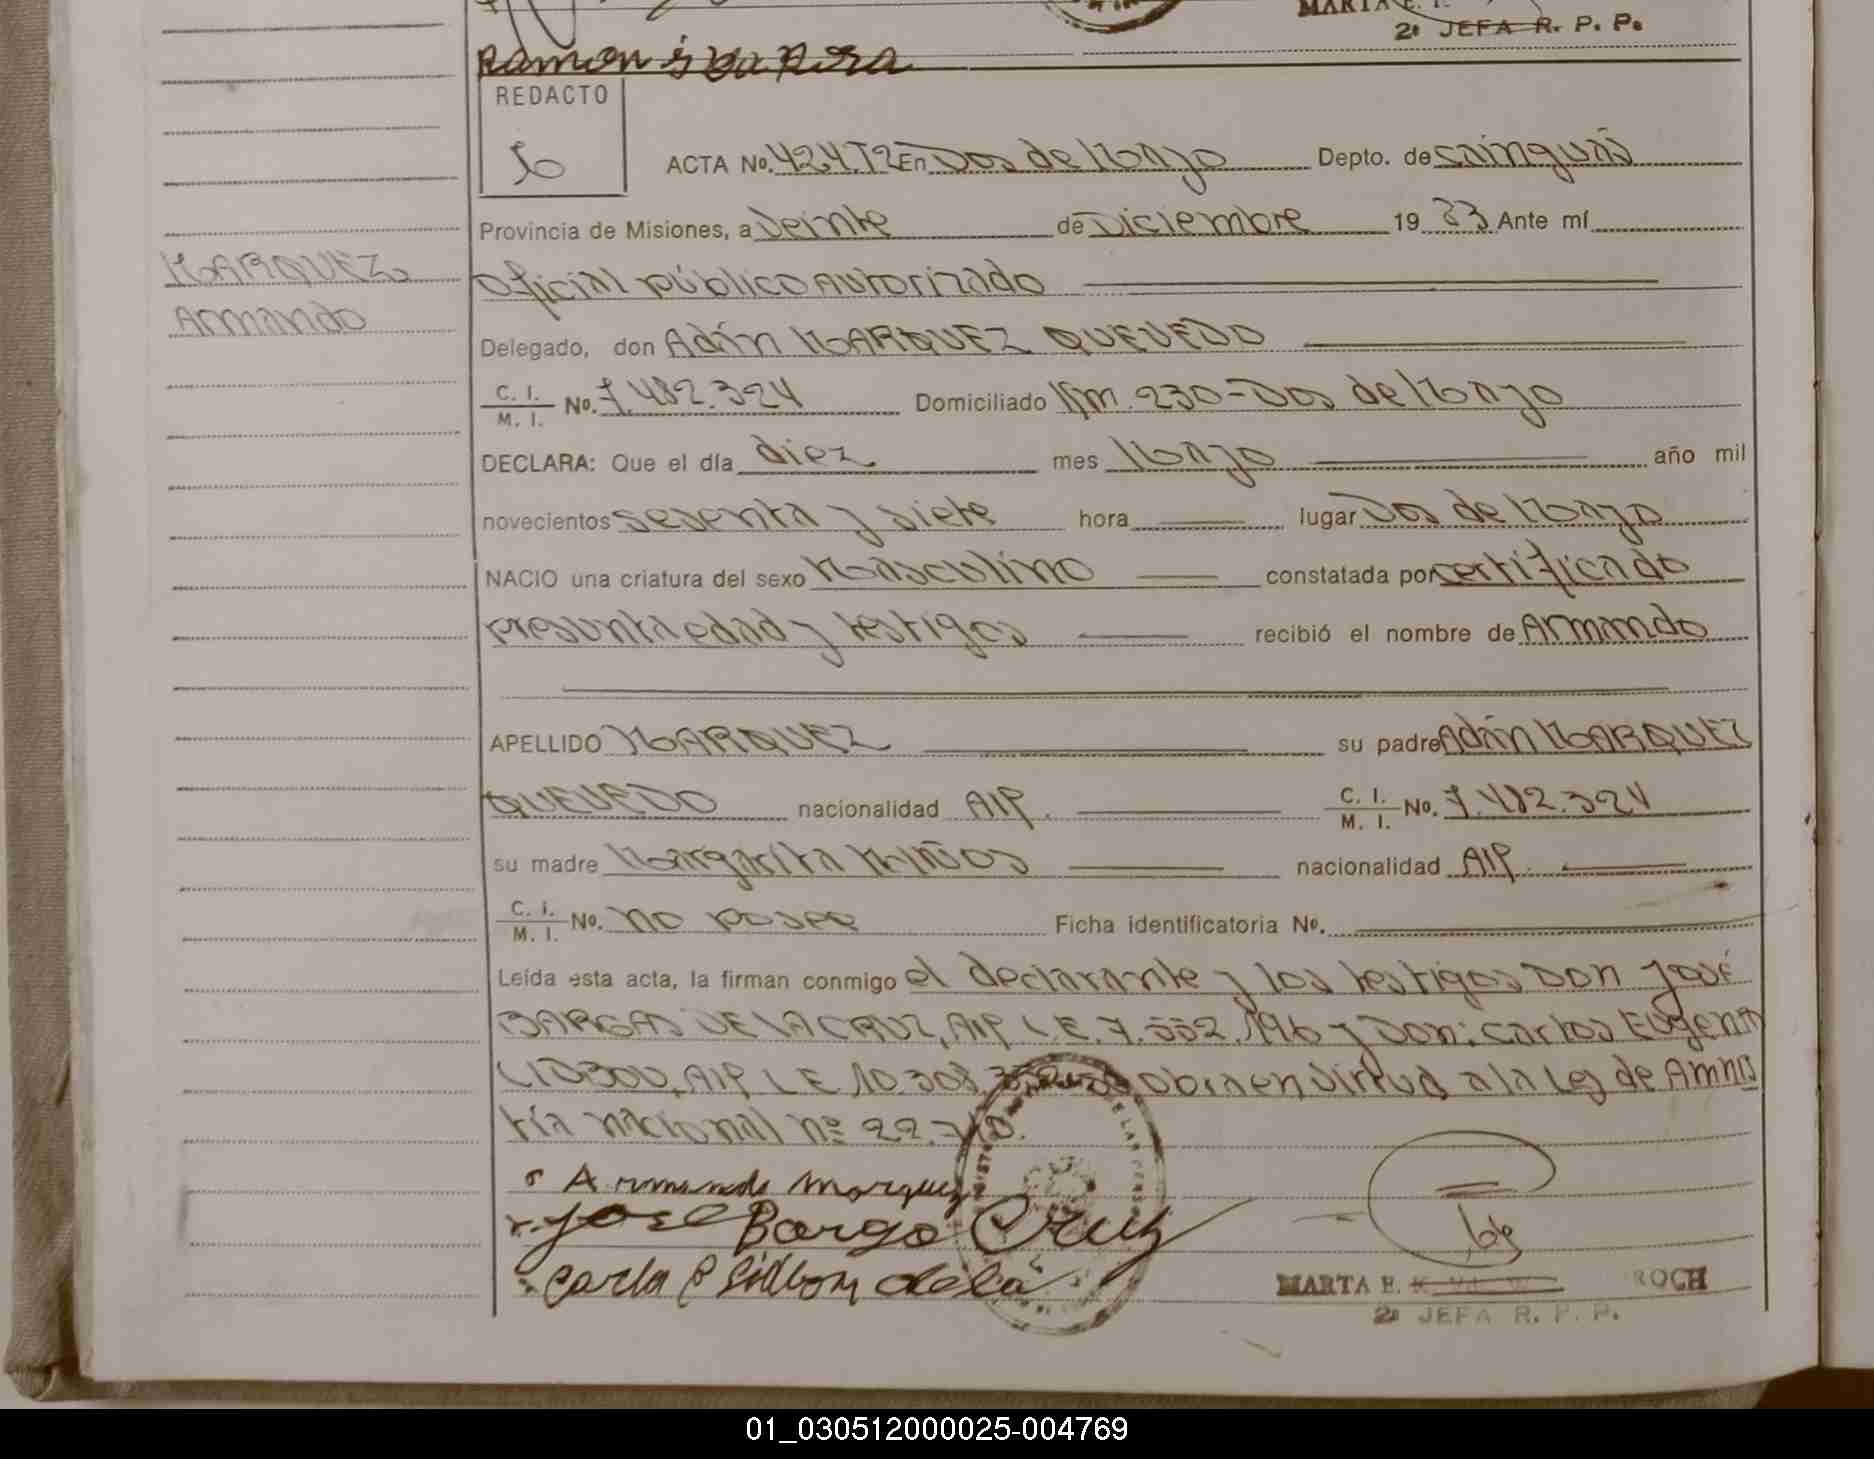 MARTA E.
2º JEFA R. P. P.
REDACTO
ACTA Nº. 424.T2 En Dos de Mayo Depto. de Cainguás
Provincia de Misiones, a Veinte de Diciembre 1983 Ante mí
MARQUEZ oficial público autorizado
Armando
Delegado, don Adán MARQUEZ QUEVEDO
C. I. / M. I. Nº. 7.482.324 Domiciliado Km. 230 - Dos de Mayo
DECLARA: Que el día diez mes Mayo año mil
novecientos sesenta y siete hora lugar Dos de Mayo
NACIO una criatura del sexo Masculino constatada por certificado
presunta edad y testigos recibió el nombre de Armando
APELLIDO MARQUEZ su padre Adán MARQUEZ
QUEVEDO nacionalidad Arg. C. I. / M. I. Nº. 7.482.324
su madre Margarita nacionalidad Arg.
C. I. / M. I. Nº. no posee Ficha identificatoria Nº.
Leída esta acta, la firman conmigo el declarante y los testigos Don José
BARGAS DE LA CRUZ, Arg. L.E. 7.552.196 y Don: Carlos Eugenio
Arg. L E 10.308. obra en virtud a la Ley de Amnis
tía nacional nº 22.
Armando Marquez
José Bargo Cruz
MARTA E. ROCH
2º JEFA R. P. P.
01_030512000025-004769